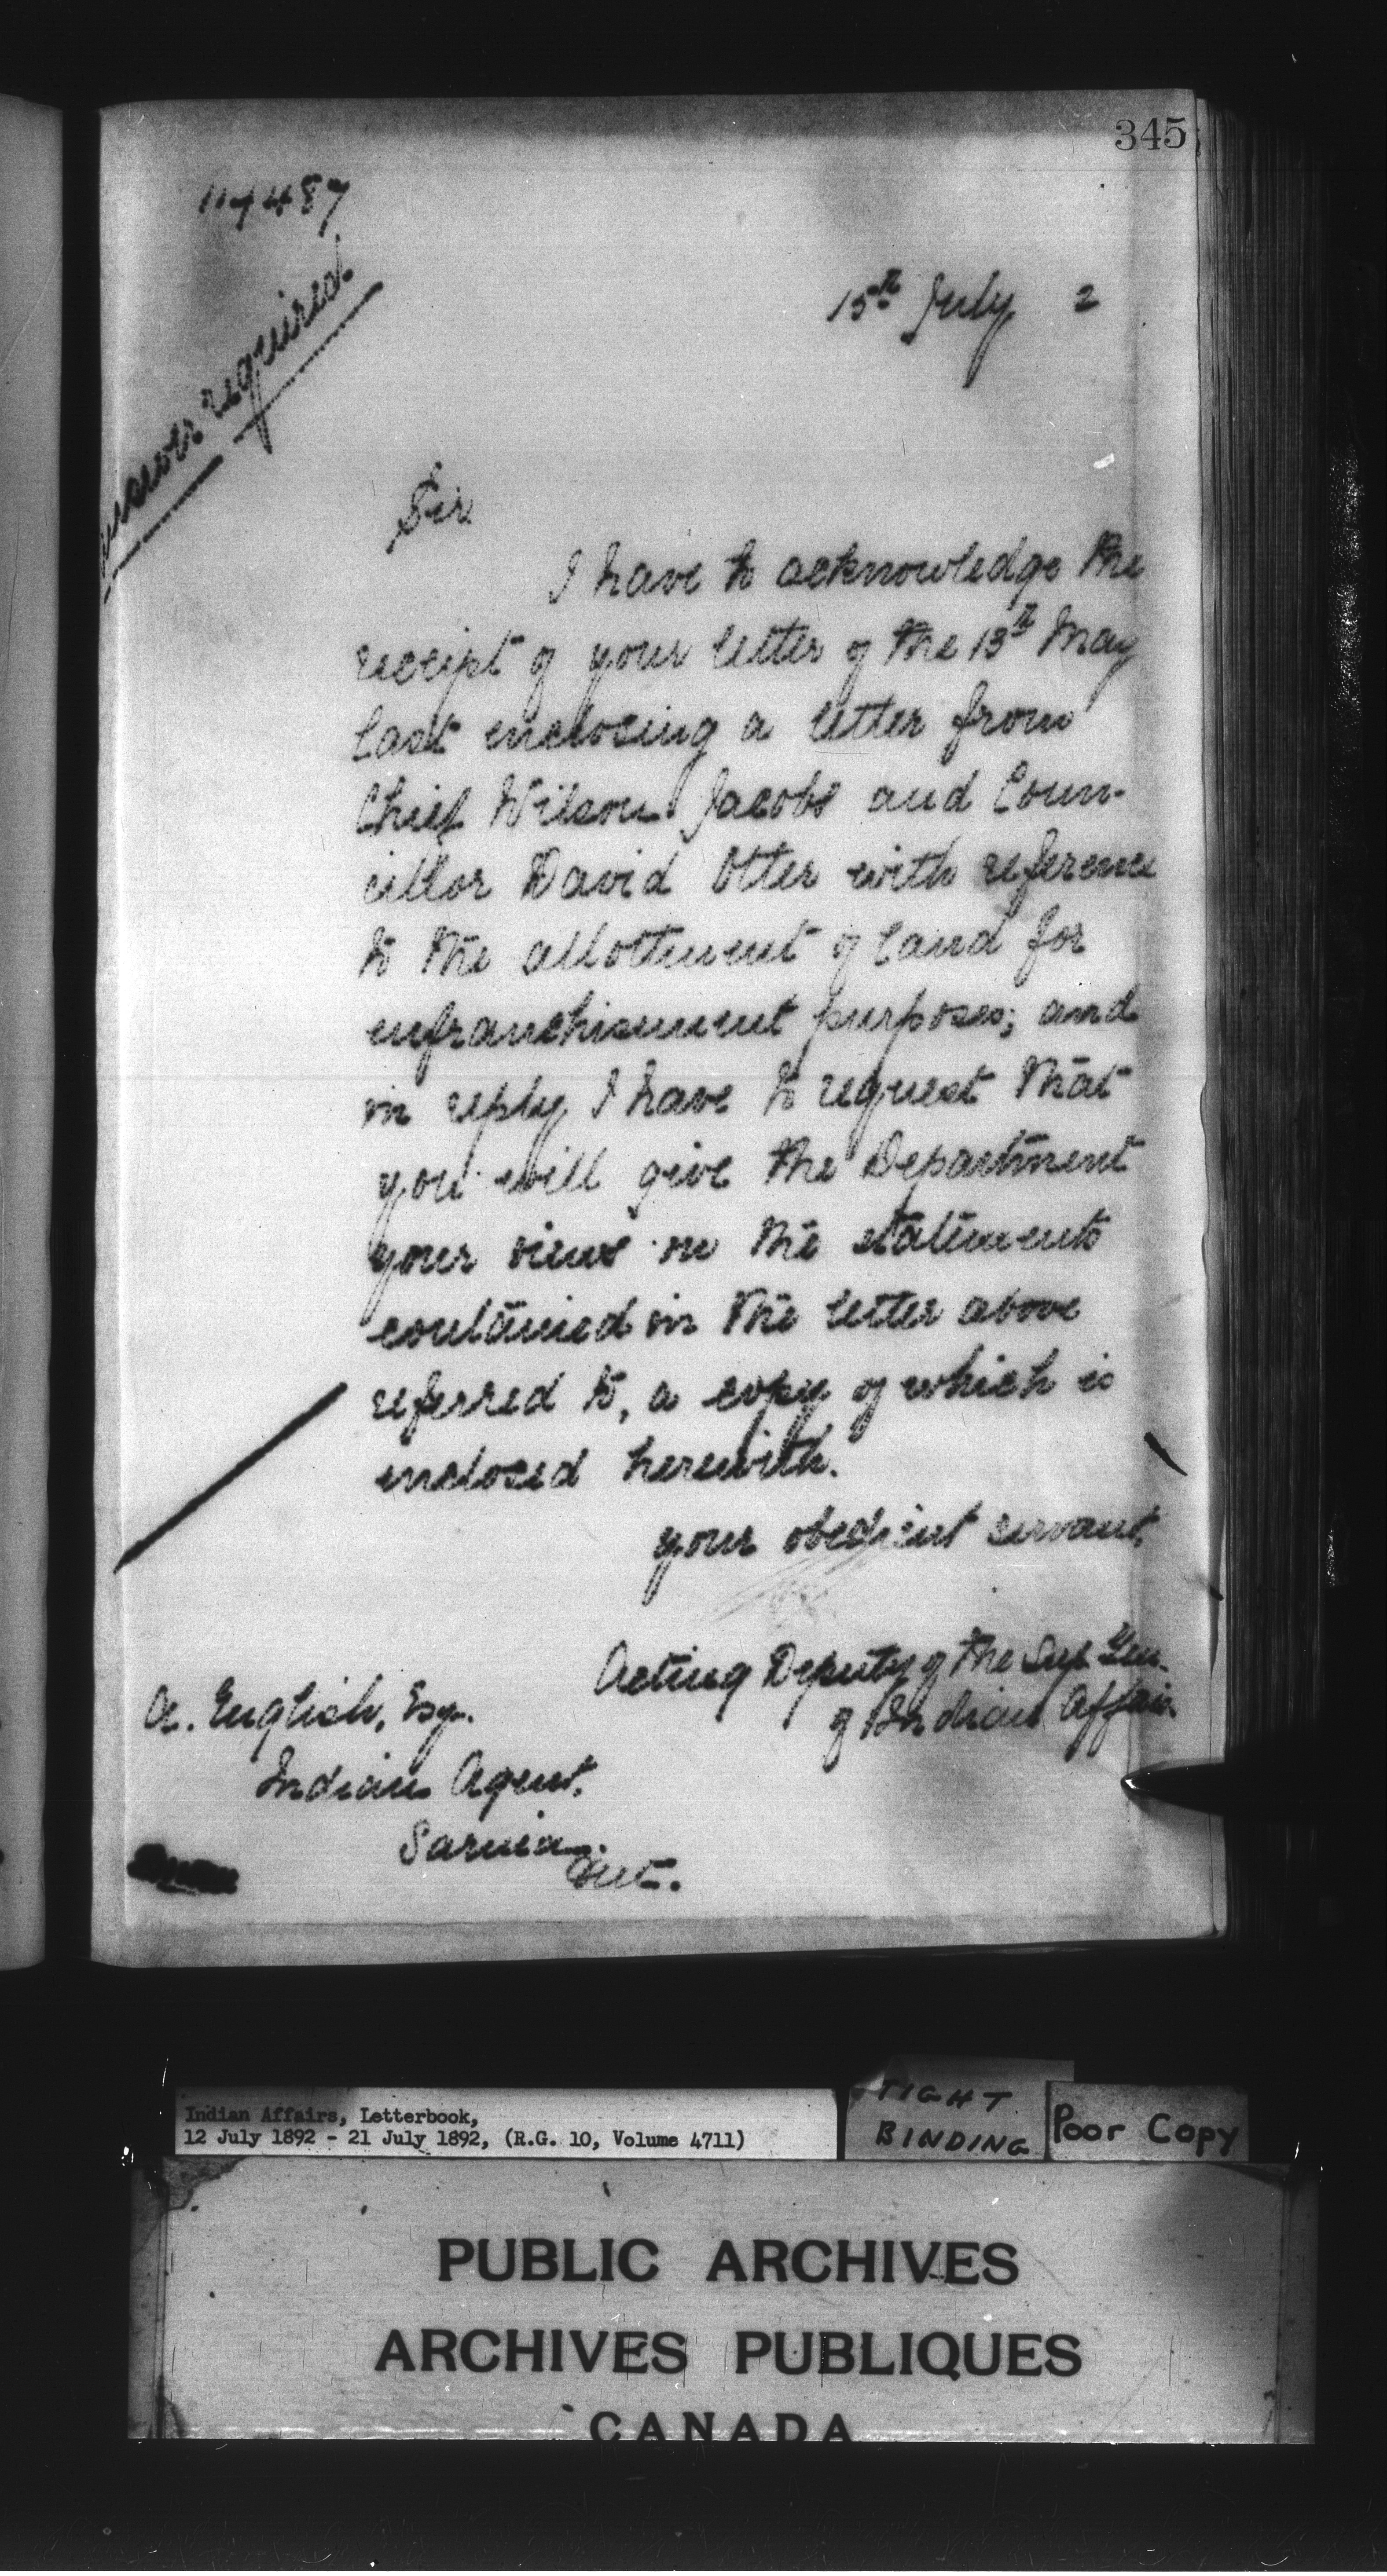 345
117487
15th July 2
answer required
Sir
I have to acknowledge the
receipt of your letter of the 13th May
last enclosing a letter from
Chief Wilson Jacobs and Coun-
cillor David Otter with reference
to the allotment of land for
enfranchisement purposes; and
in reply I have to request that
you will give the Department
your views on the statements
contained in the letter above
referred to, a copy of which is
enclosed herewith.
your obedient servant,
Acting Deputy of the Sup. Gen.
of Indian Affairs
A. English, Esq.
Indian Agent,
Sarnia.
Ont.
Indian Affairs, Letterbook,
12 July 1892 - 21 July 1892, (R.G. 10, Volume 4711)
TIGHT
BINDING
Poor Copy
PUBLIC ARCHIVES
ARCHIVES PUBLIQUES
CANADA